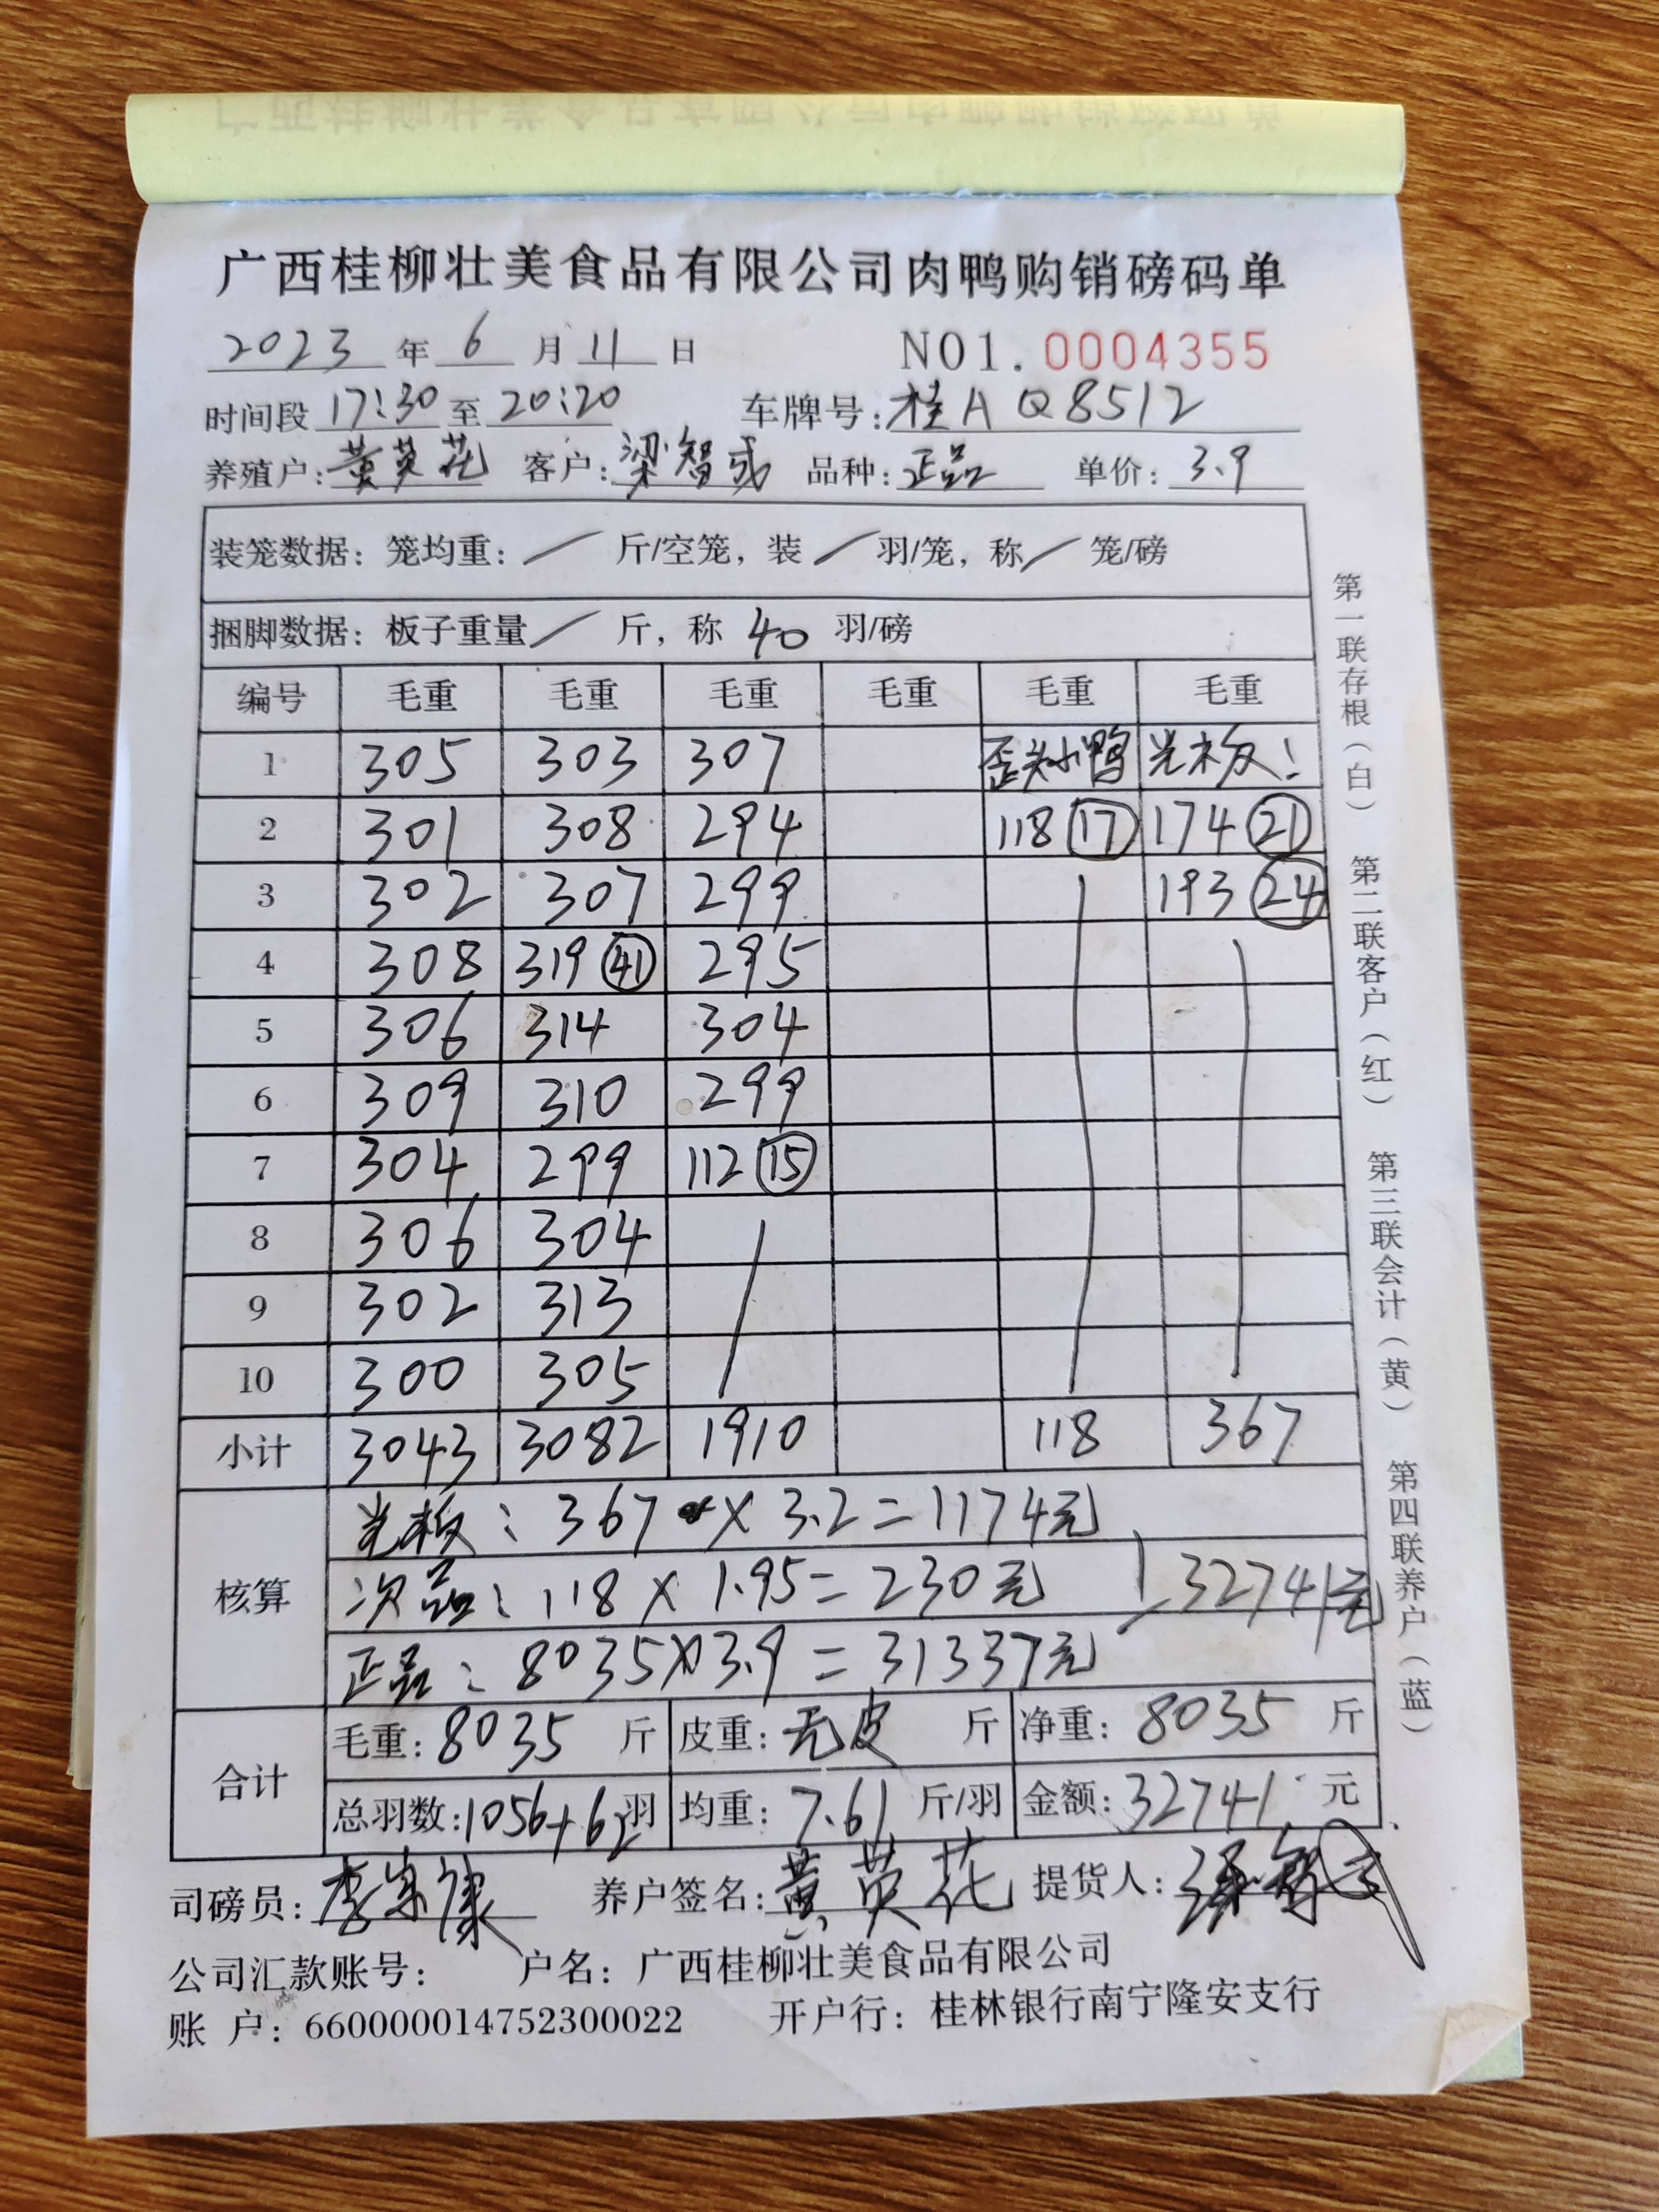 广西桂柳壮美食品有限公司肉鸭购销磅码单
2023 年 6 月 11 日 NO1. 0004355
时间段 17:30 至 20:20 车牌号: 桂A Q8512
养殖户: 黄英花 客户: 梁智 品种: 正品 单价: 3.9
装笼数据: 笼均重: / 斤/空笼, 装 / 羽/笼, 称 / 笼/磅
捆脚数据: 板子重量 / 斤, 称 40 羽/磅
编号 毛重 毛重 毛重 毛重 毛重 毛重
1 305 303 307 歪头小鸭 光板!
2 301 308 294 118 ⑰ 174 ㉑
3 302 307 299 193 ㉔
4 308 319 ㊶ 295
5 306 314 304
6 309 310 299
7 304 299 112 ⑮
8 306 304
9 302 313
10 300 305
小计 3043 3082 1910 118 367
核算
光板: 367 × 3.2 = 1174元
次品: 118 × 1.95 = 230元 32741元
正品: 8035×3.9 = 31337元
合计
毛重: 8035 斤 皮重: 无皮 斤 净重: 8035 斤
总羽数: 1056+62 羽 均重: 7.61 斤/羽 金额: 32741 元
司磅员: 养户签名: 黄英花 提货人:
公司汇款账号: 户名: 广西桂柳壮美食品有限公司
账 户: 660000014752300022 开户行: 桂林银行南宁隆安支行
第一联存根(白) 第二联客户(红) 第三联会计(黄) 第四联养户(蓝)